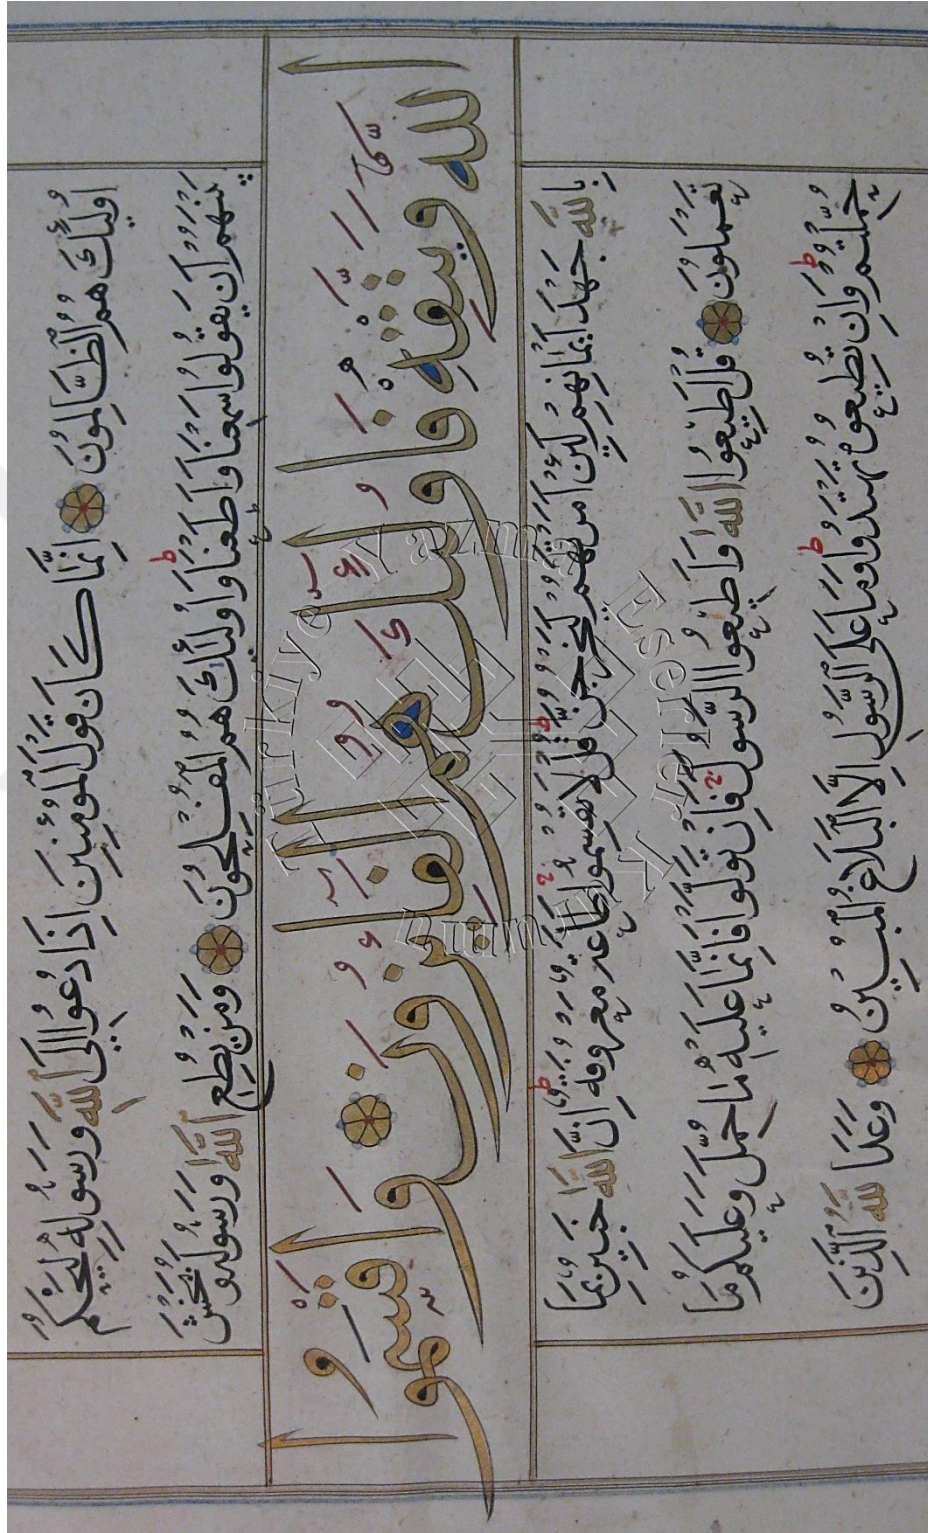 اُولٰٓئِكَ هُمُ الظَّالِمُونَ اِنَّمَا كَانَ قَوْلَ الْمُؤْمِنِينَ اِذَا دُعُوا اِلَى اللّٰهِ وَرَسُولِهِ لِيَحْكُمَ
بَيْنَهُمْ اَنْ يَقُولُوا سَمِعْنَا وَاَطَعْنَا ط وَاُولٰٓئِكَ هُمُ الْمُفْلِحُونَ وَمَنْ يُطِعِ اللّٰهَ وَرَسُولَهُ وَيَخْشَ
اللّٰهَ وَيَتَّقْهِ فَاُولٰٓئِكَ هُمُ الْفَآئِزُونَ وَاَقْسَمُوا
بِاللّٰهِ جَهْدَ اَيْمَانِهِمْ لَئِنْ اَمَرْتَهُمْ لَيَخْرُجُنَّ ط قُلْ لَا تُقْسِمُوا ج طَاعَةٌ مَعْرُوفَةٌ ط اِنَّ اللّٰهَ خَبِيرٌ بِمَا
تَعْمَلُونَ قُلْ اَطِيعُوا اللّٰهَ وَاَطِيعُوا الرَّسُولَ ج فَاِنْ تَوَلَّوْا فَاِنَّمَا عَلَيْهِ مَا حُمِّلَ وَعَلَيْكُمْ مَا
حُمِّلْتُمْ ط وَاِنْ تُطِيعُوهُ تَهْتَدُوا ط وَمَا عَلَى الرَّسُولِ اِلَّا الْبَلَاغُ الْمُبِينُ وَعَدَ اللّٰهُ الَّذِينَ
Türkiye Yazma Eserler